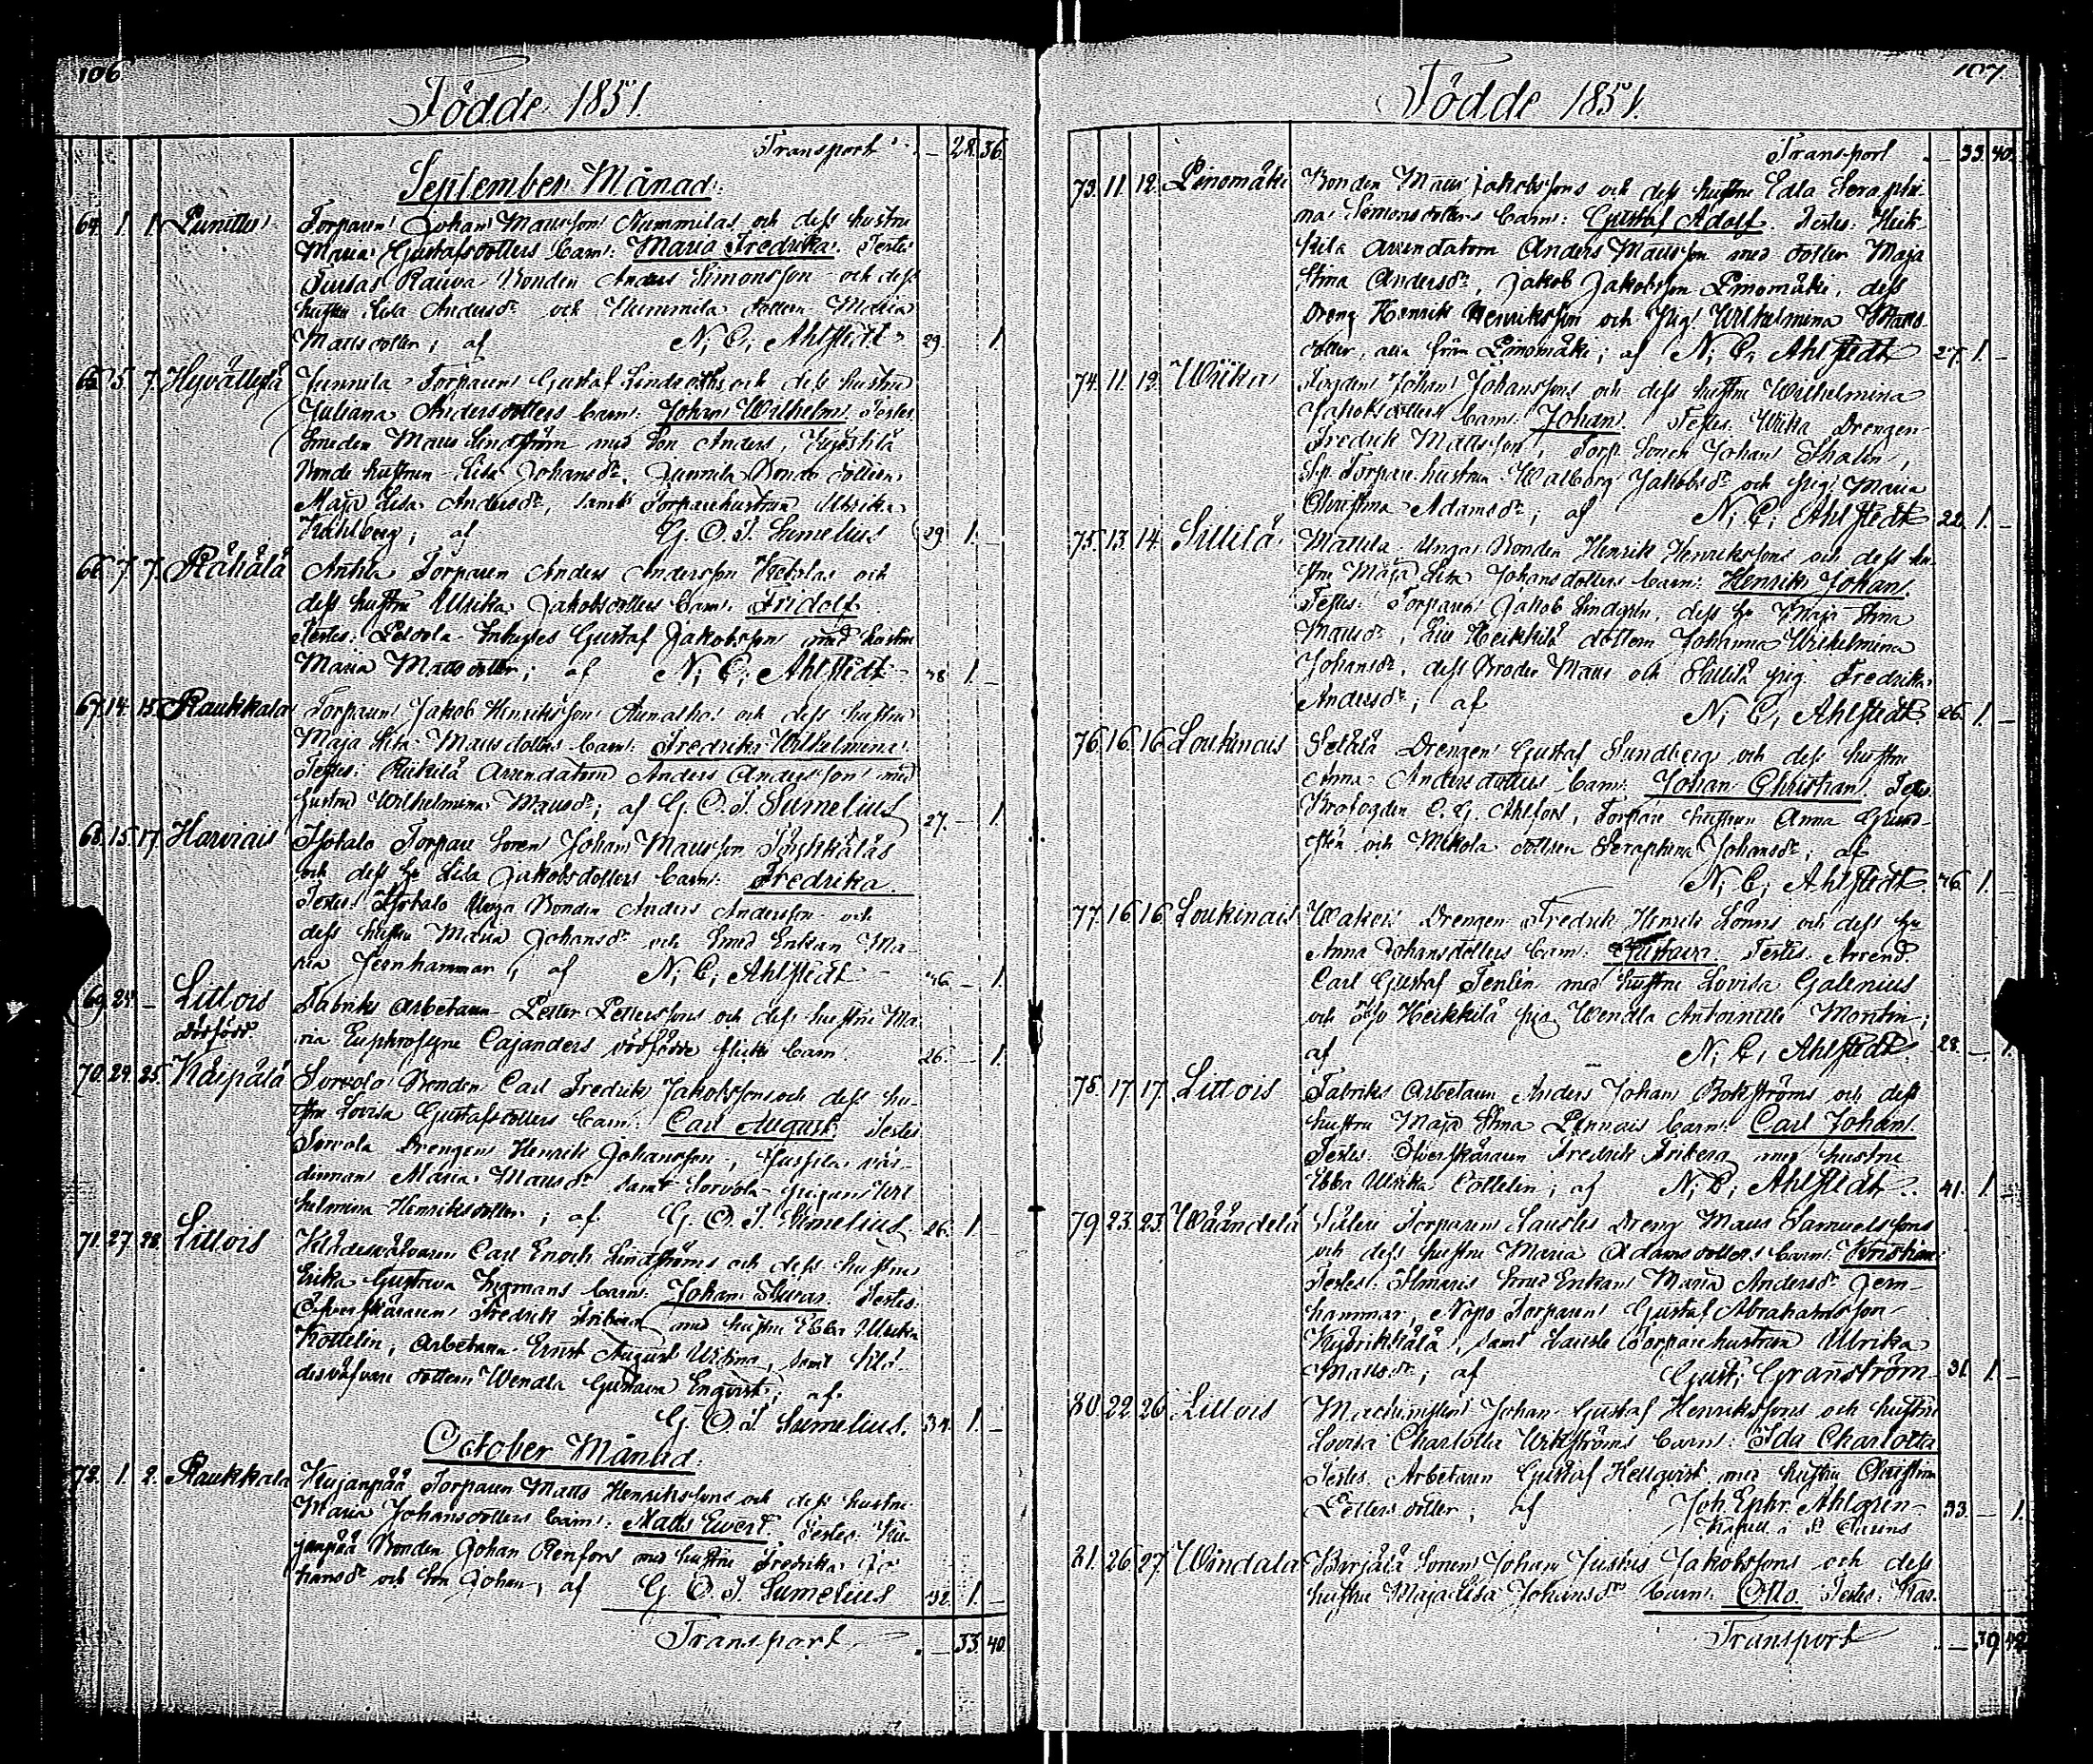 106
Födde 1851.
Transport – 28. 36.
September Månad.
64. 1. 1. Punittu Torparen Johan Mattsson Nummilas och dess hustru
Maria Gustafsdotters barn: Maria Fredrika. Testes
Bonden Anders Simonsson och dess
hustru Lisa Andersdr och Nummila dottern Maria
Mattsdotter; af N. C. Ahlstedt 29. 1.
65. 5. 7. Hyvättylä Junnila Torparen Gustaf Lindroths och dess hustru
Juliana Andersdotters barn: Johan Wilhelm. Testes
Smeden Matts Lindström med Son Anders,
Bonde hustrun Lisa Johansdr, Junnila Bonde dottern
Maja Lisa Andersdr, samt Torparehustrun Ulrika
; af G. O. J. Sumelius 29. 1. –
66. 7. 7. Råhålå Anttila Torparen Anders Andersson och
dess hustru Ulrika Jakobsdotters barn: Fridolf.
Testes: Inhyses Gustaf Jakobsson med hustru
Maria Mattsdotter; af N. C. Ahlstedt 38 1. –
67. 14. 15. Raukkala Torparen Jakob Henrikssons och dess hustru
Maja Lisa Mattsdotters barn: Fredrika Wilhelmina.
Testes: Arrendatorn Anders Andersson med
hustru Wilhelmina Mattsdr; af G. O. J. Sumelius 27. – 1.
68. 15. 17. Harvais Isotalo Torpare Sonen Johan Mattsson
och dess hu Lisa Jakobsdotters barn: Fredrika.
Testes: Isotalo Unga Bonden Anders Andersson och
dess hustru Maria Johansdr och Smed Enkan Ma-
ria Jernhammar; af N. C. Ahlstedt 46 – 1.
69. 24. – Littois Fabriks Arbetaren Petter Petterssons och dess hustru Ma-
dödfödd ria Euphrosyne Cajanders dödfödde flicke barn. 26. – 1.
70. 24. 25. Kåspålå Sorvola Bonden Carl Fredrik Jakobssons och dess hu-
stru Lovisa Gustafsdotters barn: Carl August. Testes
Sorvola Drengen Henrik Johansson, värd-
innan Maria Mattsdr samt Sorvola pigan Wil-
helmina Henriksdotter; af G. O. J. Sumelius 26. 1. –
71. 27. 28. Littois Klädesväfvaren Carl Enoch Lindströms och dess hustru
Erika Gustava barn: Johan Thuras. Testes:
Öfverskäraren Fredrik Friberg med hustru Ebba Ulrika
Kottelin, Arbetaren Ernst August samt Klä-
desväfvare dottern Wendla Gustava Engqvist; af
G. O. J. Sumelius. 34. 1. –
October Månad.
72. 1. 2. Raukkala Kujanpää Torparen Matts Henrikssons och dess hustru
Maria Johansdotters barn: Matts Evert. Testes: Ku-
janpää Bonden Johan Renfors med hustru Fredrika Jo-
hansdr och Son Johan, af G. O. J. Sumelius 32. 1. –
Transport – 33. 40.
107.
Födde 1851.
Transport – 33. 40.
73. 11. 12. Pinomäki Bonden Matts Jakobssons och dess hustru Edla Seraphi-
na Simonsdotters barn: Gustaf Adolf. Testes: Heik-
kilä Arrendatorn Anders Mattsson med dotter Maja
Stina Andersdr, Jakob Jakobsson Pinomäki, dess
Dreng Henrik Henriksson och pig. Wilhelmina Matts-
dotter, alla från Pinomäki; af N. C. Ahlstedt 27. 1. –
74. 11. 13. Wiika Fogden Johan Johanssons och dess hustru Wilhelmina
Jakobsdotters barn: Johan. Testes: Wiika Drengen
Fredrik Mattsson, Torp. Sonen Johan Thalen,
Torpare hustrun Walborg Jakobsdr och pig. Maria
Christina Adamsdr; af N. C. Ahlstedt 22. 1. –
75. 13. 14. Sillilä Mattila Unga Bonden Henrik Henrikssons och dess hu-
stru Maja Lisa Johansdotters barn: Henrik Johan.
Testes: Torparen Jakob Lindgren, dess hu Maja Stina
Mattsdr, Heikkilä dottern Johanna Wilhelmina
Johansdr, dess Broder Matts och Sillilä pig. Fredrika
Andersdr; af N. C. Ahlstedt 26. 1. –
76. 16. 16. Loukinais Setälä Drengen Gustaf Sundbergs och dess hustru
Anna Andersdotters barn: Johan Christian. Testes.
Brofogden C. G. Ahlfors, Torpare hustrun Anna Grund-
sten och Mikola dottern Seraphina Johansdr; af
N. C. Ahlstedt 46. 1. –
77. 16. 16. Loukinais Drengen Fredrik Henrik Lönns och dess hu
Anna Johansdotters barn: Gustava. Testes: Arrend.
Carl Gustaf Fenlin med hustru Lovisa Galenius
och Heikkilä pig. Wendla Antoinette Montin;
af N. C. Ahlstedt. 28. – 1.
78. 17. 17. Littois Fabriks Arbetaren Anders Johan Bokströms och dess
hustru Maja Stina barn: Carl Johan.
Testes. Öfverskäraren Fredrik Friberg med hustru
Ebba Ulrika Cottelin; af N. C. Ahlstedt. 41. 1. –
79. 23. 23. Wäändelä Torparen Dreng Matts Samuelssons
och dess hustru Maria Adamsdotters barn: Kristian.
Testes. Ilmaris Smed Enkan Maria Andersdr Jern-
hammar, Torparen Gustaf Abrahamsson
samt Torparehustrun Ulrika
Mattsdr; af Gust. Granström 31. 1. –
80. 22. 26. Littois Machinisten Johan Gustaf Henrikssons och hustru
Lovisa Charlotta Wikströms barn: Ida Charlotta
Testes. Arbetaren Gustaf Hellqvist med hustru Christina
Pettersdotter; af Joh. Ephr. Ahlgren 33. – 1.
Kapell. i
81. 26. 27. Windala Sonen Johan Justus Jakobssons och dess
hustru Maja Lisa Johansdrs barn: Otto. Testes. Kas-
Transport – 39. 42.